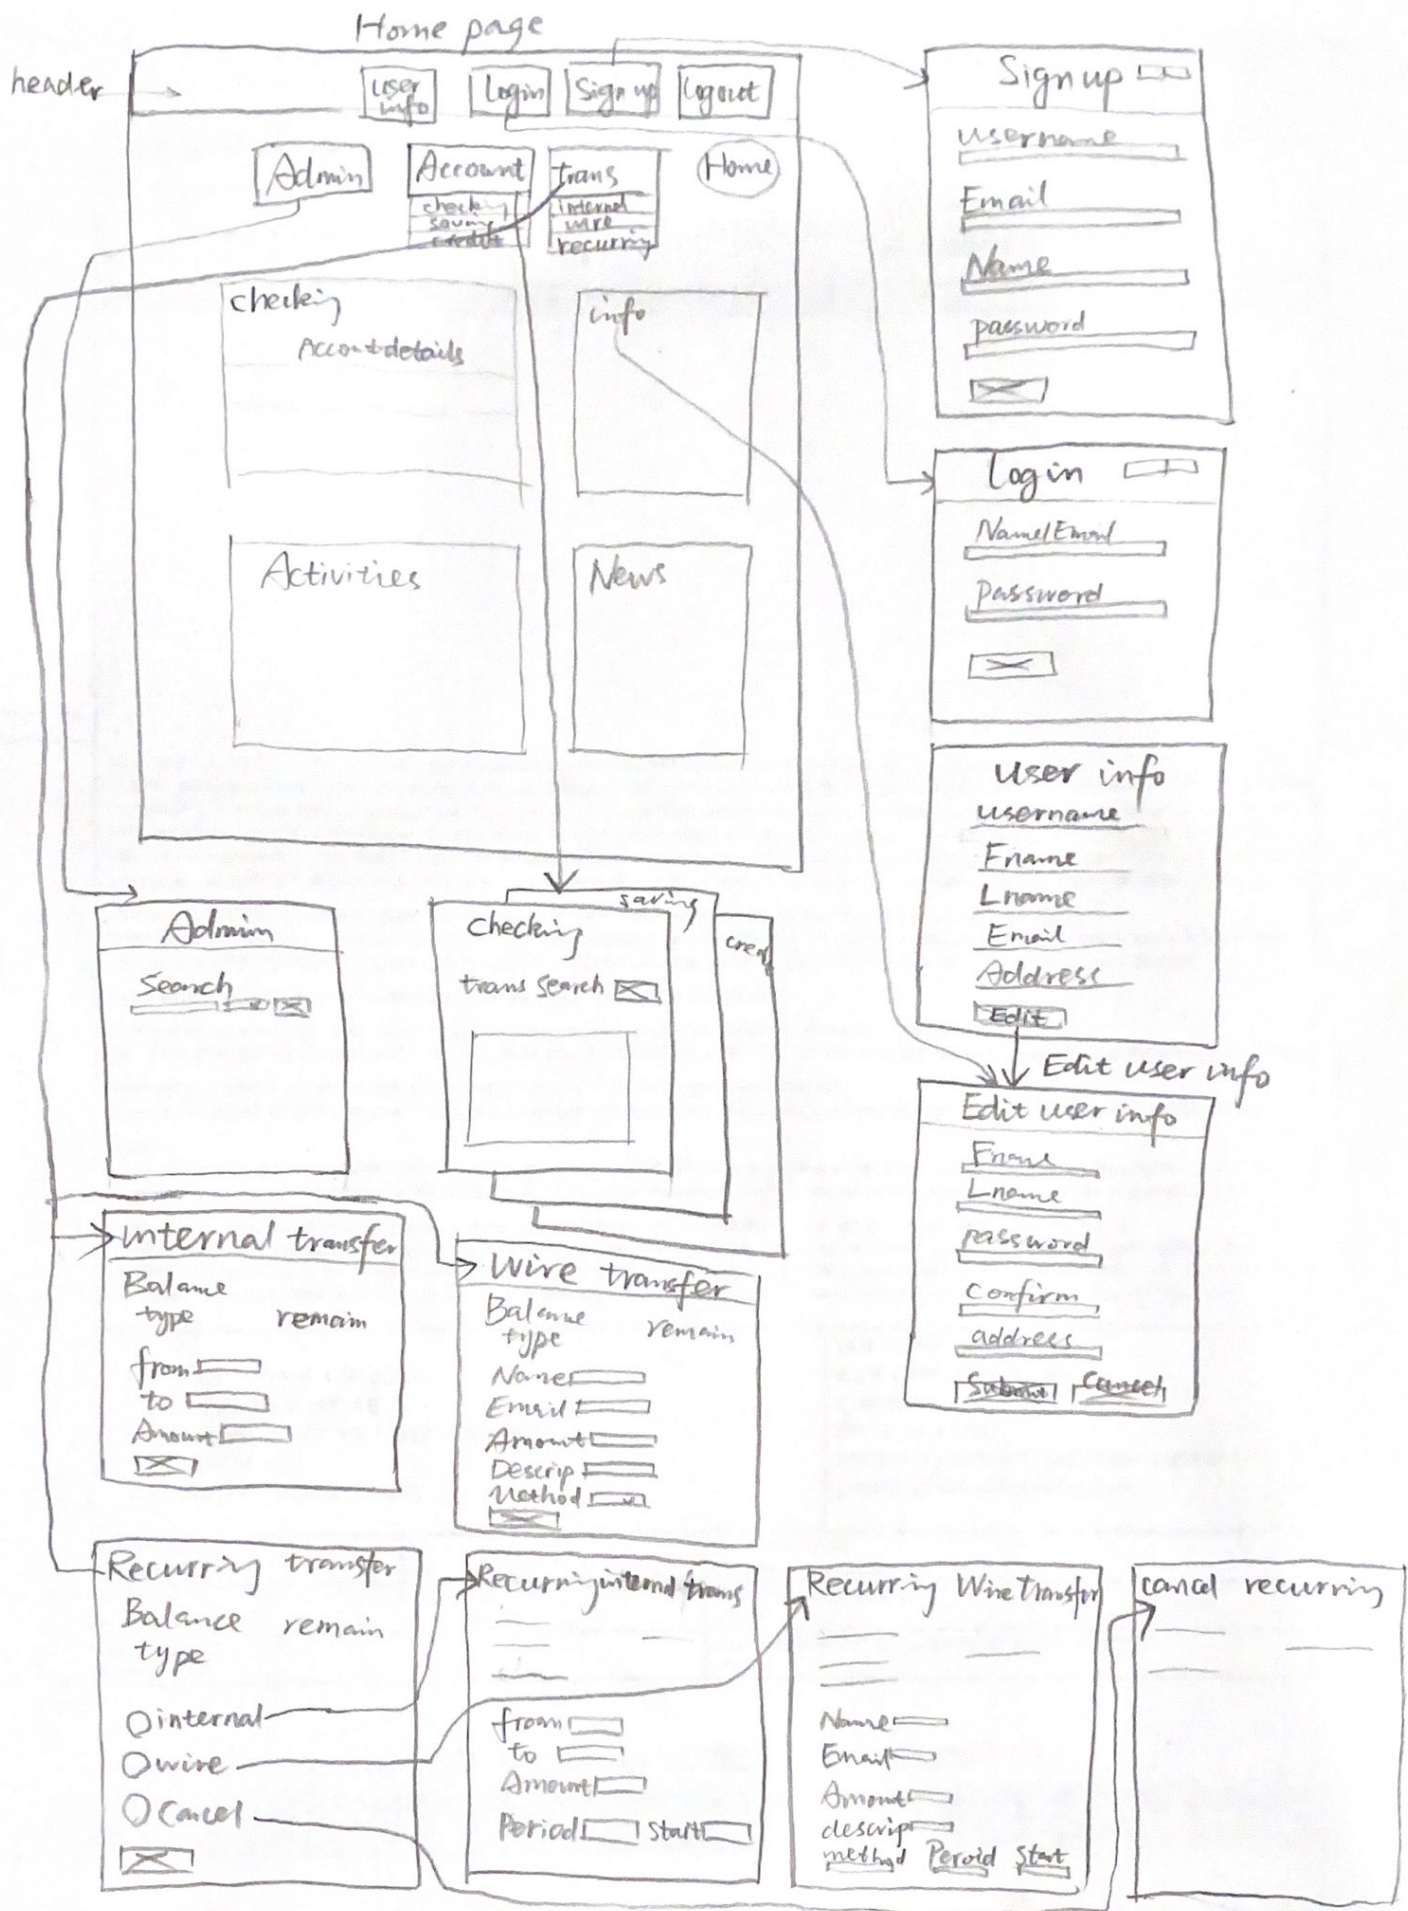 Home page
header
user info
Login
Sign up
Logout
Admin
Account
checking
saving
credit
trans
internal
wire
recurring
Home
checking
Account details
info
Activities
News
Sign up
username
Email
Name
password
Login
Name/Email
Password
User info
username
Fname
Lname
Email
Address
Edit
Edit user info
Edit user info
Fname
Lname
password
Confirm
address
Submit
Cancel
Admin
Search
checking
trans search
saving
cred
Internal transfer
Balance
type remain
from
to
Amount
Wire transfer
Balance
type remain
Name
Email
Amount
Descrip
Method
Recurring transfer
Balance remain
type
internal
wire
Cancel
Recurring internal trans
from
to
Amount
Period Start
Recurring Wire Transfer
Name
Email
Amount
descrip
method Peroid Start
cancel recurring